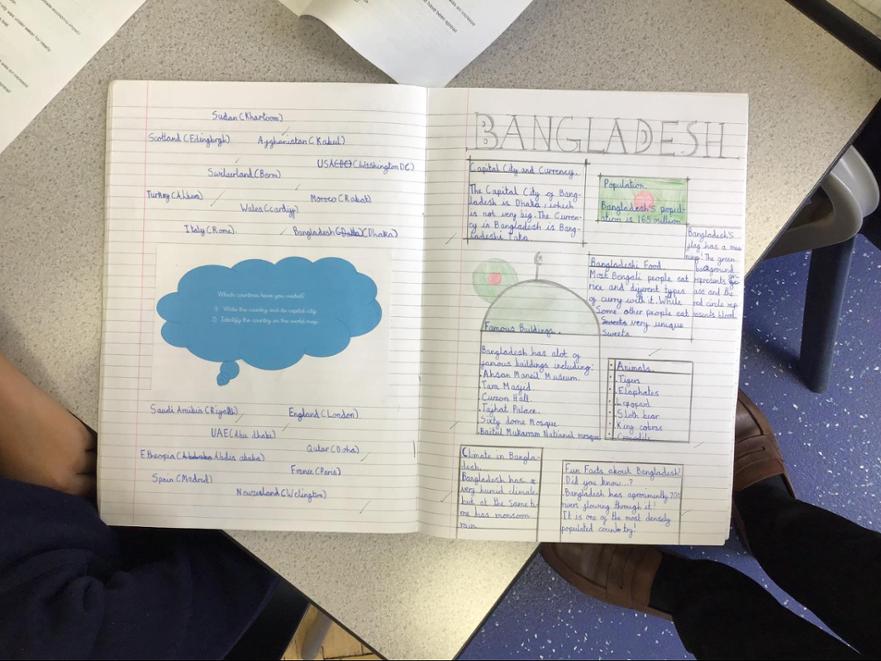 Sudan (Khartoom)
Scotland (Edingburgh) Afghanistan (Kabul)
(Washington DC)
Switzerland (Bern)
Morroco (Rabat)
Wales (cardiff)
Italy (Rome) Bangladesh (Dhaka)
Which countries have you visited?
1) Write the country and its capital city.
2) Identify the country on the world map.
Saudi Arabia (Riyadh) England (London)
UAE (Abu dhabi)
Qatar (Doha)
France (Paris)
Spain (Madrid)
BANGLADESH
Capital City and Currency.
The Capital City of Bang-
ladesh is Dhaka, which
is not very big. The Curren-
cy in Bangladesh is Bang-
ladeshi Taka.
Population.
Bangladesh's popul-
ation is 165 million
Bangladesh's
flag has a mea
ning! The green
background
represents
and the
red circle rep
resents blood.
Bangladeshi Food.
Most Bengali people eat
rice and different types
of curry with it. While
Some other people eat
very unique
Sweets.
Famous Buildings.
Bangladesh has alot of
famous buildings including:
• Ahsan Manzil Museum.
• Tara Masjid.
• Curzon Hall.
• Tajhat Palace.
• Sixty dome Mosque.
• Baitul Mukarram National mosque
Animals
• Tigers
• Elephates
• Leopard
• Sloth bear
• King cobras
• Crocodile
Climate in Bangla-
desh.
Bangladesh has a
very humid climate
but at the same ti
me has monsoon
rain.
Fun Facts about Bangladesh!
Did you know...?
Bangladesh has 700
rivers flowing through it!
It is one of the most densely
populated country!